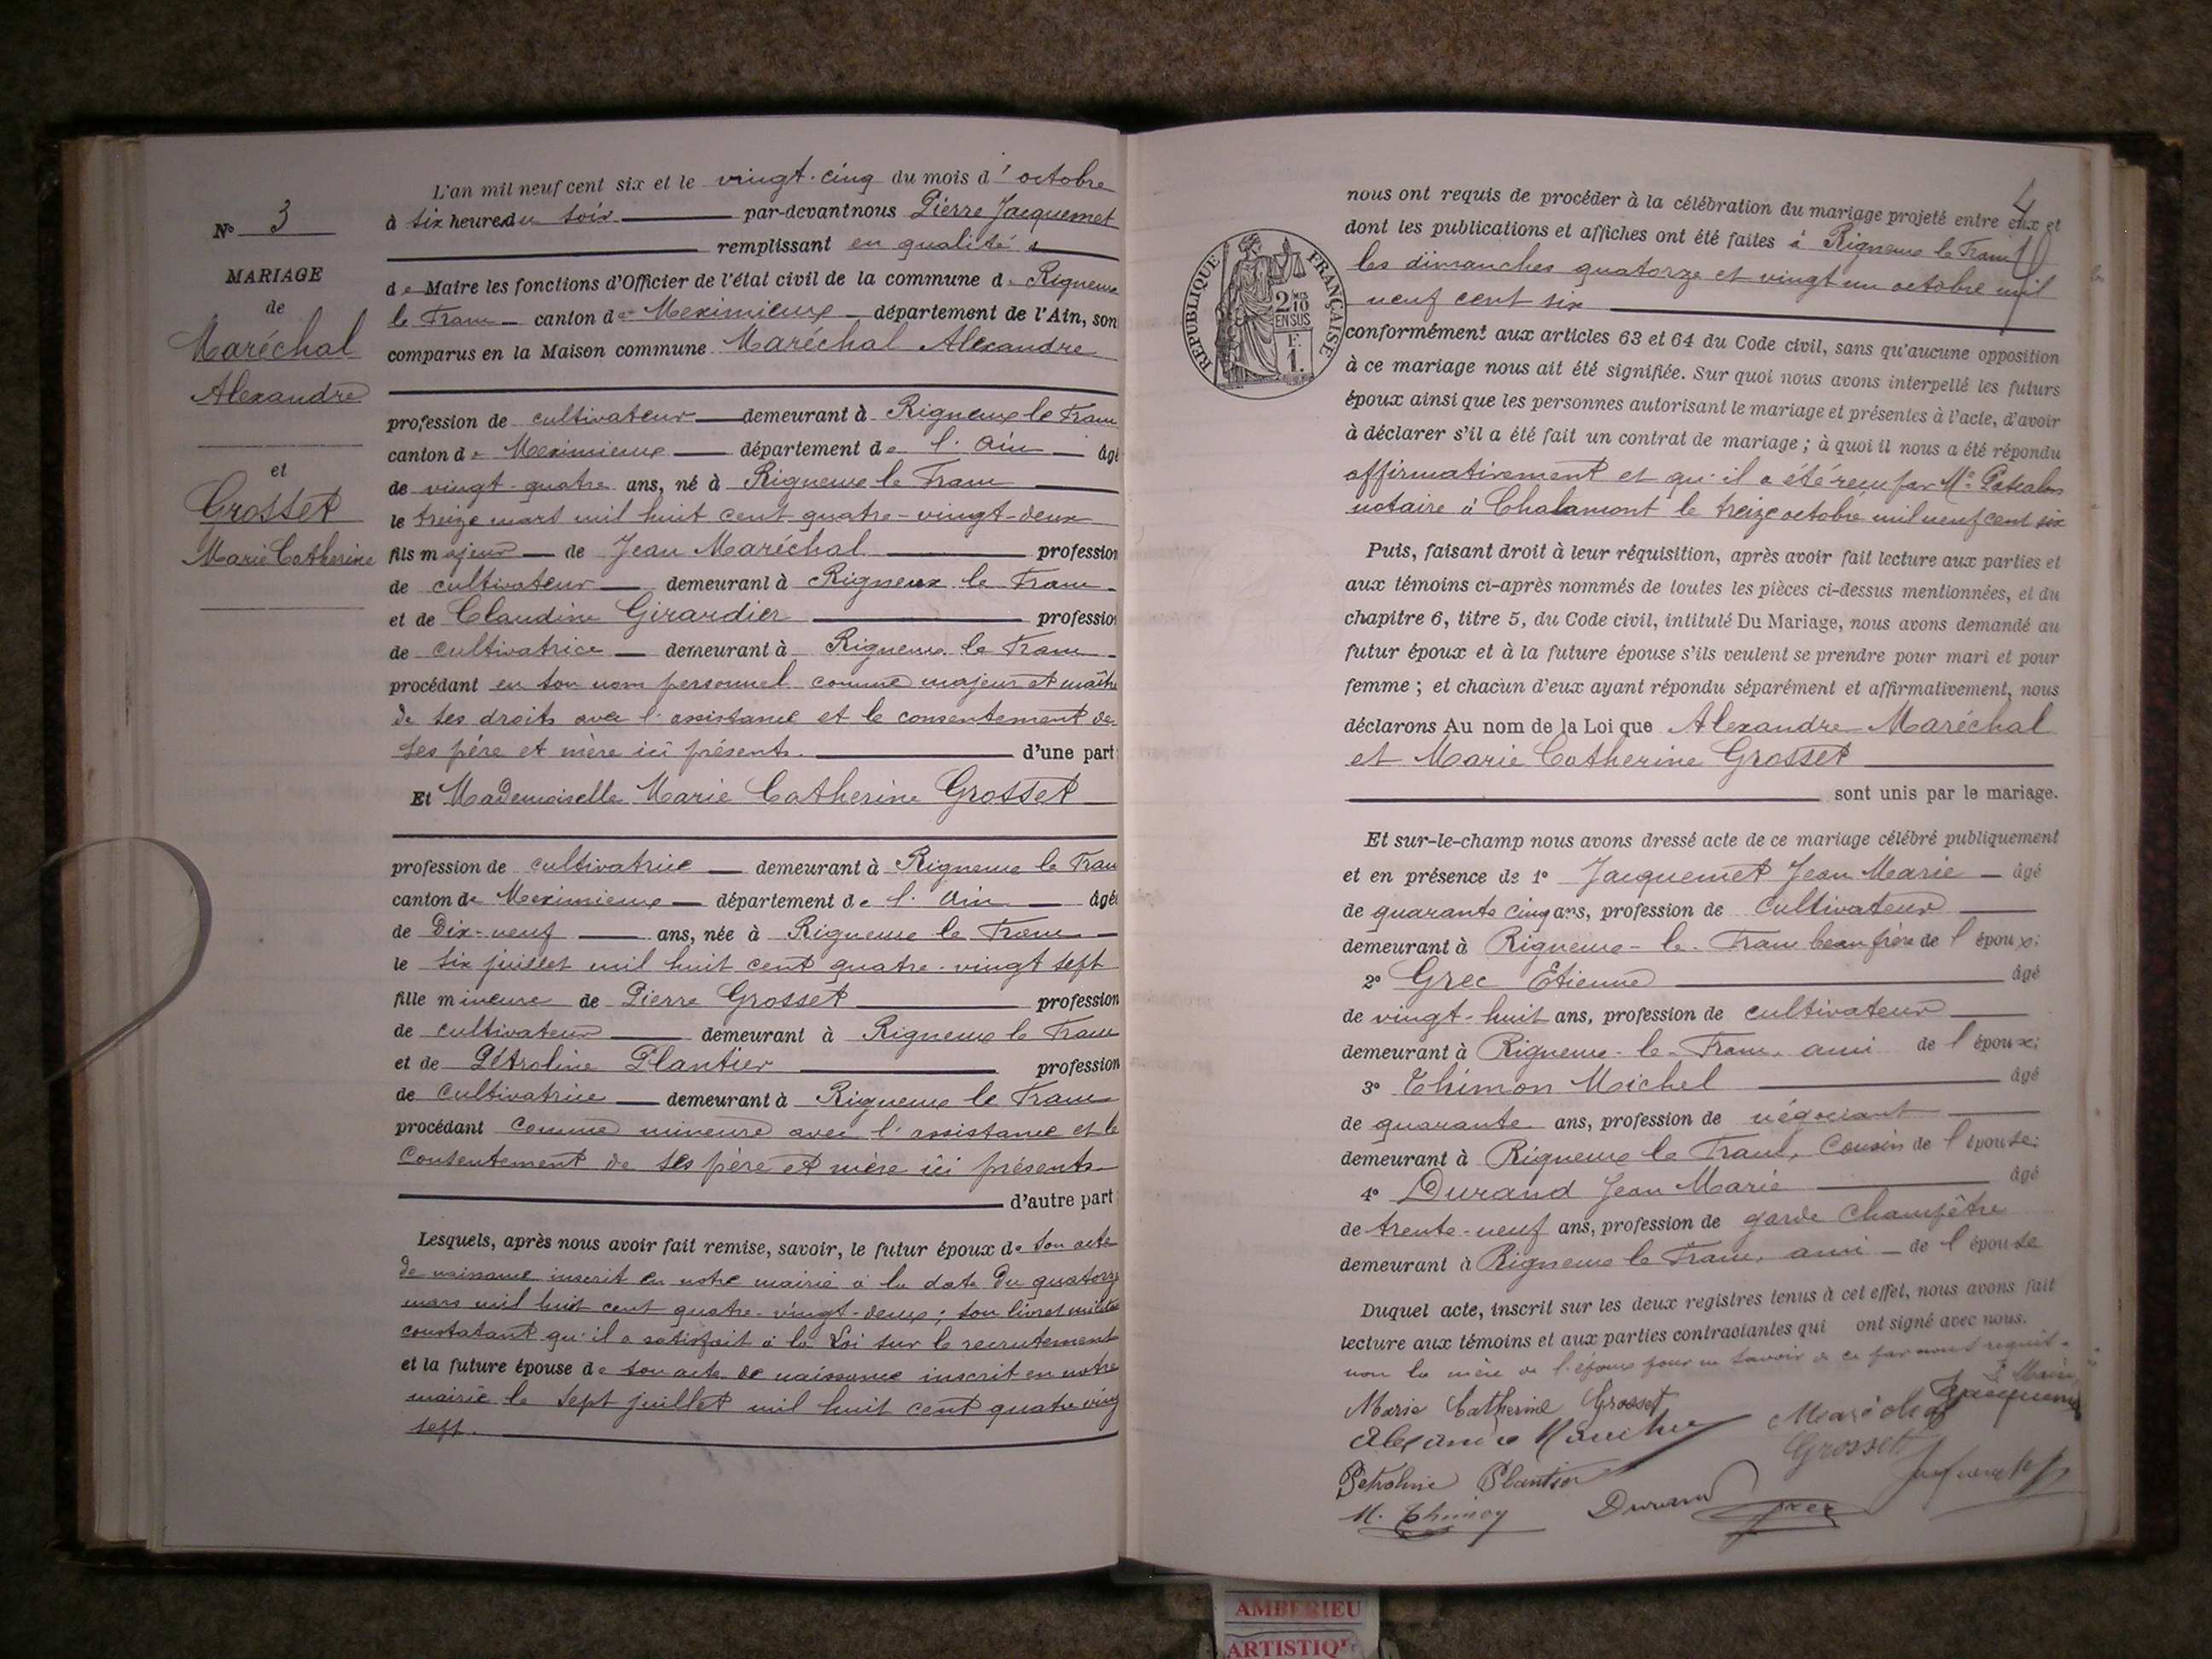 N° 3
MARIAGE
de
Maréchal
Alexandre
et
Grosset
Marie Catherine
L'an mil neuf cent six et le vingt-cinq du mois d'octobre
à six heures du soir par-devant nous Pierre Jacquemet
remplissant en qualité
de Maire les fonctions d'Officier de l'état civil de la commune de Rigneux
le Franc canton de Meximieux département de l'Ain, son
comparus en la Maison commune Maréchal Alexandre
profession de cultivateur demeurant à Rigneux le Franc
canton de Meximieux département de l'Ain âgé
de vingt-quatre ans, né à Rigneux le Franc
le treize mars mil huit cent quatre-vingt-deux
fils majeur de Jean Maréchal profession
de cultivateur demeurant à Rigneux le Franc
et de Claudine Girardier profession
de cultivatrice demeurant à Rigneux le Franc
procédant en son nom personnel comme majeur et maître
de ses droits avec l'assistance et le consentement de
ses père et mère ici présents. d'une part
Et Mademoiselle Marie Catherine Grosset
profession de cultivatrice demeurant à Rigneux le Franc
canton de Meximieux département de l'Ain âgée
de Dix-neuf ans, née à Rigneux le Franc
le six juillet mil huit cent quatre-vingt sept
fille mineure de Pierre Grosset profession
de cultivateur demeurant à Rigneux le Franc
et de Pétroline Plantier profession
de cultivatrice demeurant à Rigneux le Franc
procédant comme mineure avec l'assistance et le
consentement de ses père et mère ici présents
d'autre part
Lesquels, après nous avoir fait remise, savoir, le futur époux de son acte
de naissance inscrit en notre mairie à la date du quatorze
mars mil huit cent quatre-vingt-deux; son livret militaire
constatant qu'il a satisfait à la Loi sur le recrutement
et la future épouse de son acte de naissance inscrit en notre
mairie le sept juillet mil huit cent quatre ving
sept.
4
nous ont requis de procéder à la célébration du mariage projeté entre eux et
dont les publications et affiches ont été faites à Rigneux le Franc
les dimanches quatorze et vingt un octobre mil
neuf cent six
RÉPUBLIQUE FRANÇAISE
2/10 MES
EN SUS
F.
1.
conformément aux articles 63 et 64 du Code civil, sans qu'aucune opposition
à ce mariage nous ait été signifiée. Sur quoi nous avons interpellé les futurs
époux ainsi que les personnes autorisant le mariage et présentes à l'acte, d'avoir
à déclarer s'il a été fait un contrat de mariage ; à quoi il nous a été répondu
affirmativement et qu'il a été reçu par Me
notaire à Chalamont le treize octobre mil neuf cent six
Puis, faisant droit à leur réquisition, après avoir fait lecture aux parties et
aux témoins ci-après nommés de toutes les pièces ci-dessus mentionnées, et du
chapitre 6, titre 5, du Code civil, intitulé Du Mariage, nous avons demandé au
futur époux et à la future épouse s'ils veulent se prendre pour mari et pour
femme ; et chacun d'eux ayant répondu séparément et affirmativement, nous
déclarons Au nom de la Loi que Alexandre Maréchal
et Marie Catherine Grosset
sont unis par le mariage.
Et sur-le-champ nous avons dressé acte de ce mariage célébré publiquement
et en présence de 1° Jacquemet Jean Marie âgé
de quarante cinq ans, profession de cultivateur
demeurant à Rigneux-le-Franc beau frère de l'époux;
2° Grec Etienne âgé
de vingt-huit ans, profession de cultivateur
demeurant à Rigneux-le-Franc, ami de l'époux;
3° Thimon Michel âgé
de quarante ans, profession de négociant
demeurant à Rigneux le Franc, Cousin de l'épouse;
4° Durand Jean Marie âgé
de trente-neuf ans, profession de garde Champêtre
demeurant à Rigneux le Franc, ami de l'épouse
Duquel acte, inscrit sur les deux registres tenus à cet effet, nous avons fait
lecture aux témoins et aux parties contractantes qui ont signé avec nous.
non la mère de l'époux pour ne savoir de ce par nous requise.
Le Maire,
Marie Catherine Grosset
Maréchal Jacquemet
Grosset
Petroline Plantier
M. Thimon Durand Grec
AMBERIEU
ARTISTIQU